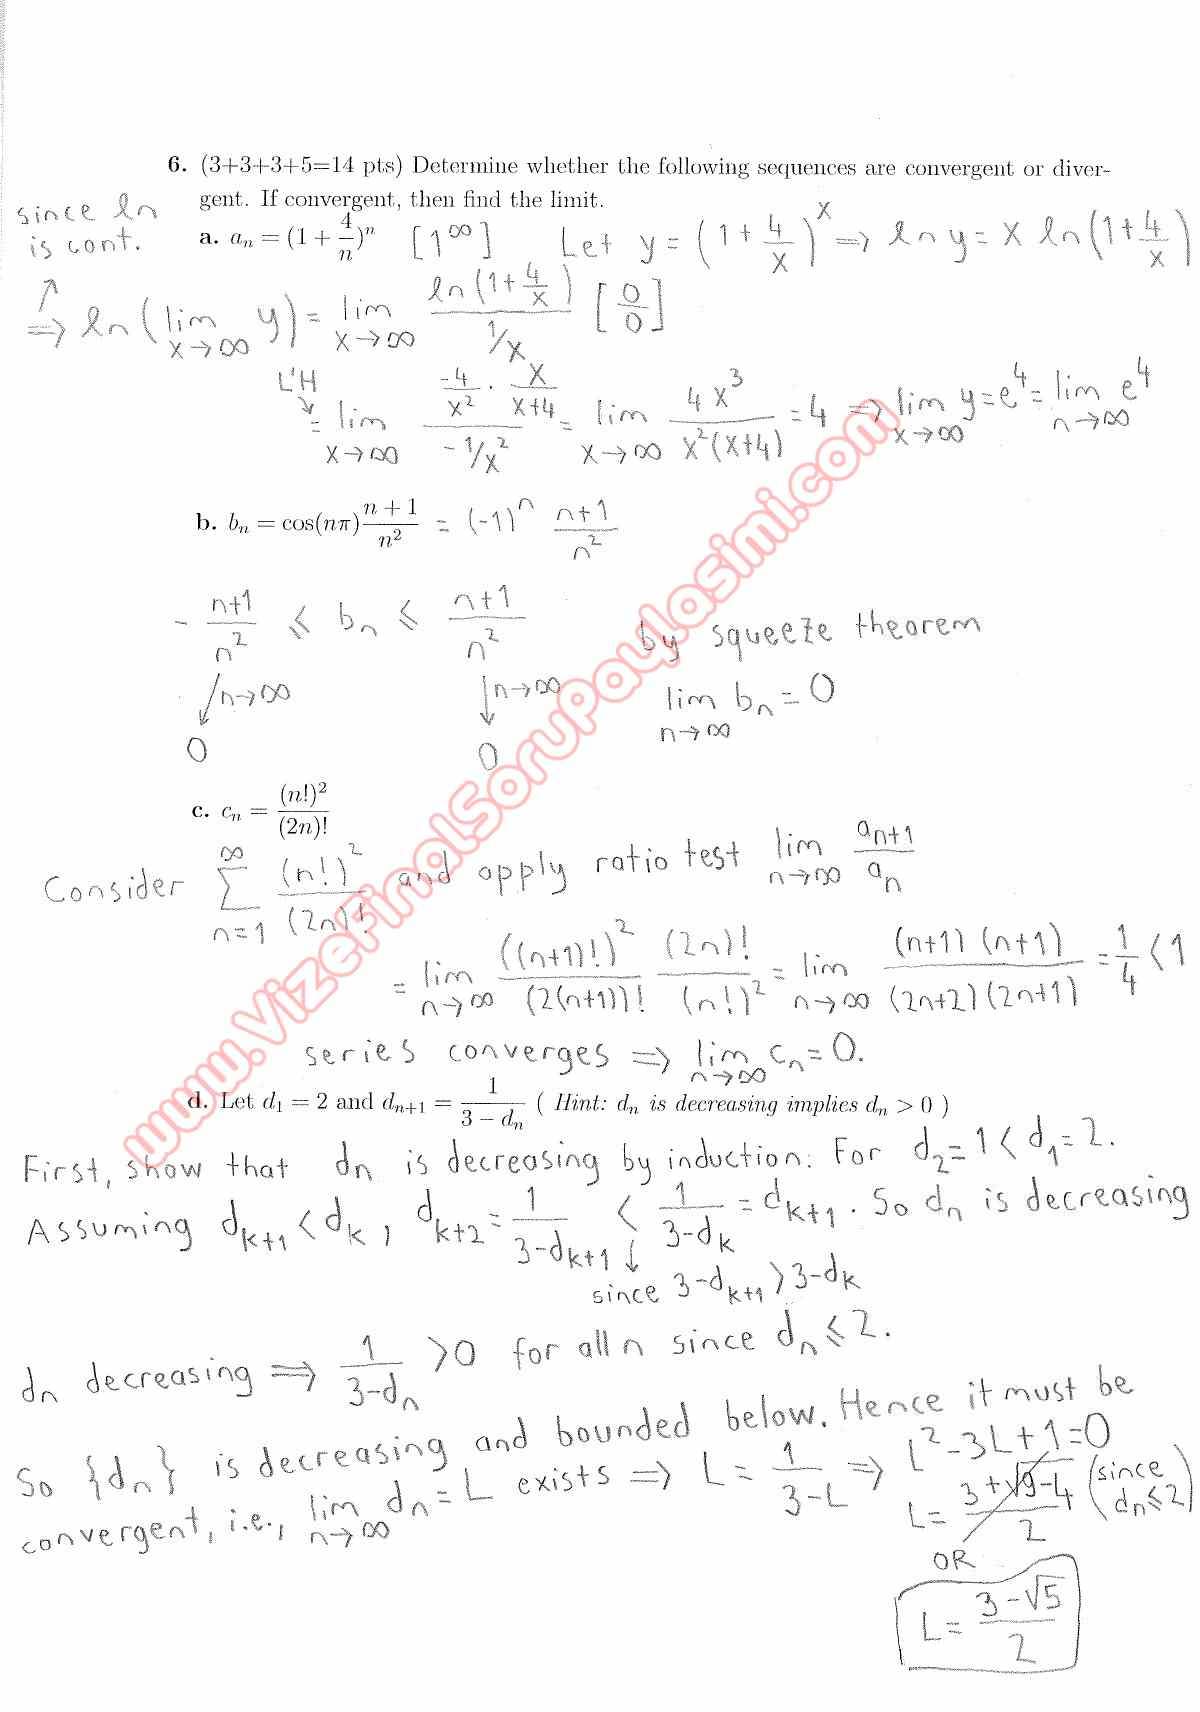 6. (3+3+3+5=14 pts) Determine whether the following sequences are convergent or diver-
gent. If convergent, then find the limit.
since ln
is cont.
a. aₙ = (1 + 4/n)ⁿ [1^∞] Let y = (1 + 4/x)^x ⇒ ln y = x ln(1 + 4/x)
⇒ ln(lim_{x→∞} y) = lim_{x→∞} ln(1+4/x) / (1/x) [0/0]
L'H
= lim_{x→∞} (-4/x² · x/(x+4)) / (-1/x²) = lim_{x→∞} 4x³ / (x²(x+4)) = 4 ⇒ lim_{x→∞} y = e⁴ = lim_{n→∞} e⁴
b. bₙ = cos(nπ) (n+1)/n² = (-1)ⁿ (n+1)/n²
- (n+1)/n² ≤ bₙ ≤ (n+1)/n² by squeeze theorem
↓ n→∞ ↓ n→∞ lim_{n→∞} bₙ = 0
0 0
c. cₙ = (n!)²/(2n)!
Consider ∑_{n=1}^{∞} (n!)²/(2n)! and apply ratio test lim_{n→∞} aₙ₊₁/aₙ
= lim_{n→∞} ((n+1)!)²/(2(n+1))! (2n)!/(n!)² = lim_{n→∞} (n+1)(n+1)/((2n+2)(2n+1)) = 1/4 < 1
series converges ⇒ lim_{n→∞} cₙ = 0.
d. Let d₁ = 2 and dₙ₊₁ = 1/(3 − dₙ) ( Hint: dₙ is decreasing implies dₙ > 0 )
First, show that dₙ is decreasing by induction: For d₂ = 1 < d₁ = 2.
Assuming d_{k+1} < d_k, d_{k+2} = 1/(3-d_{k+1}) < 1/(3-d_k) = d_{k+1}. So dₙ is decreasing
↓
since 3-d_{k+1} > 3-d_k
dₙ decreasing ⇒ 1/(3-dₙ) > 0 for all n since dₙ ≤ 2.
So {dₙ} is decreasing and bounded below. Hence it must be
convergent, i.e., lim_{n→∞} dₙ = L exists ⇒ L = 1/(3-L) ⇒ L² - 3L + 1 = 0
L = (3+√(9-4))/2 (since dₙ ≤ 2)
OR
L = (3-√5)/2
www.VizeFinalSoruPaylasimi.com